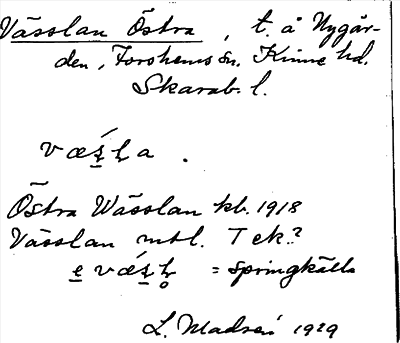 Vässlan Östra, t. å Nygår-
den, Forshems sn. Kinne hd.
Skarab. l.
Östra Wässlan kb. 1918
Vässlan mtl. Tek.?
= springkälla
L. Madsén 1929